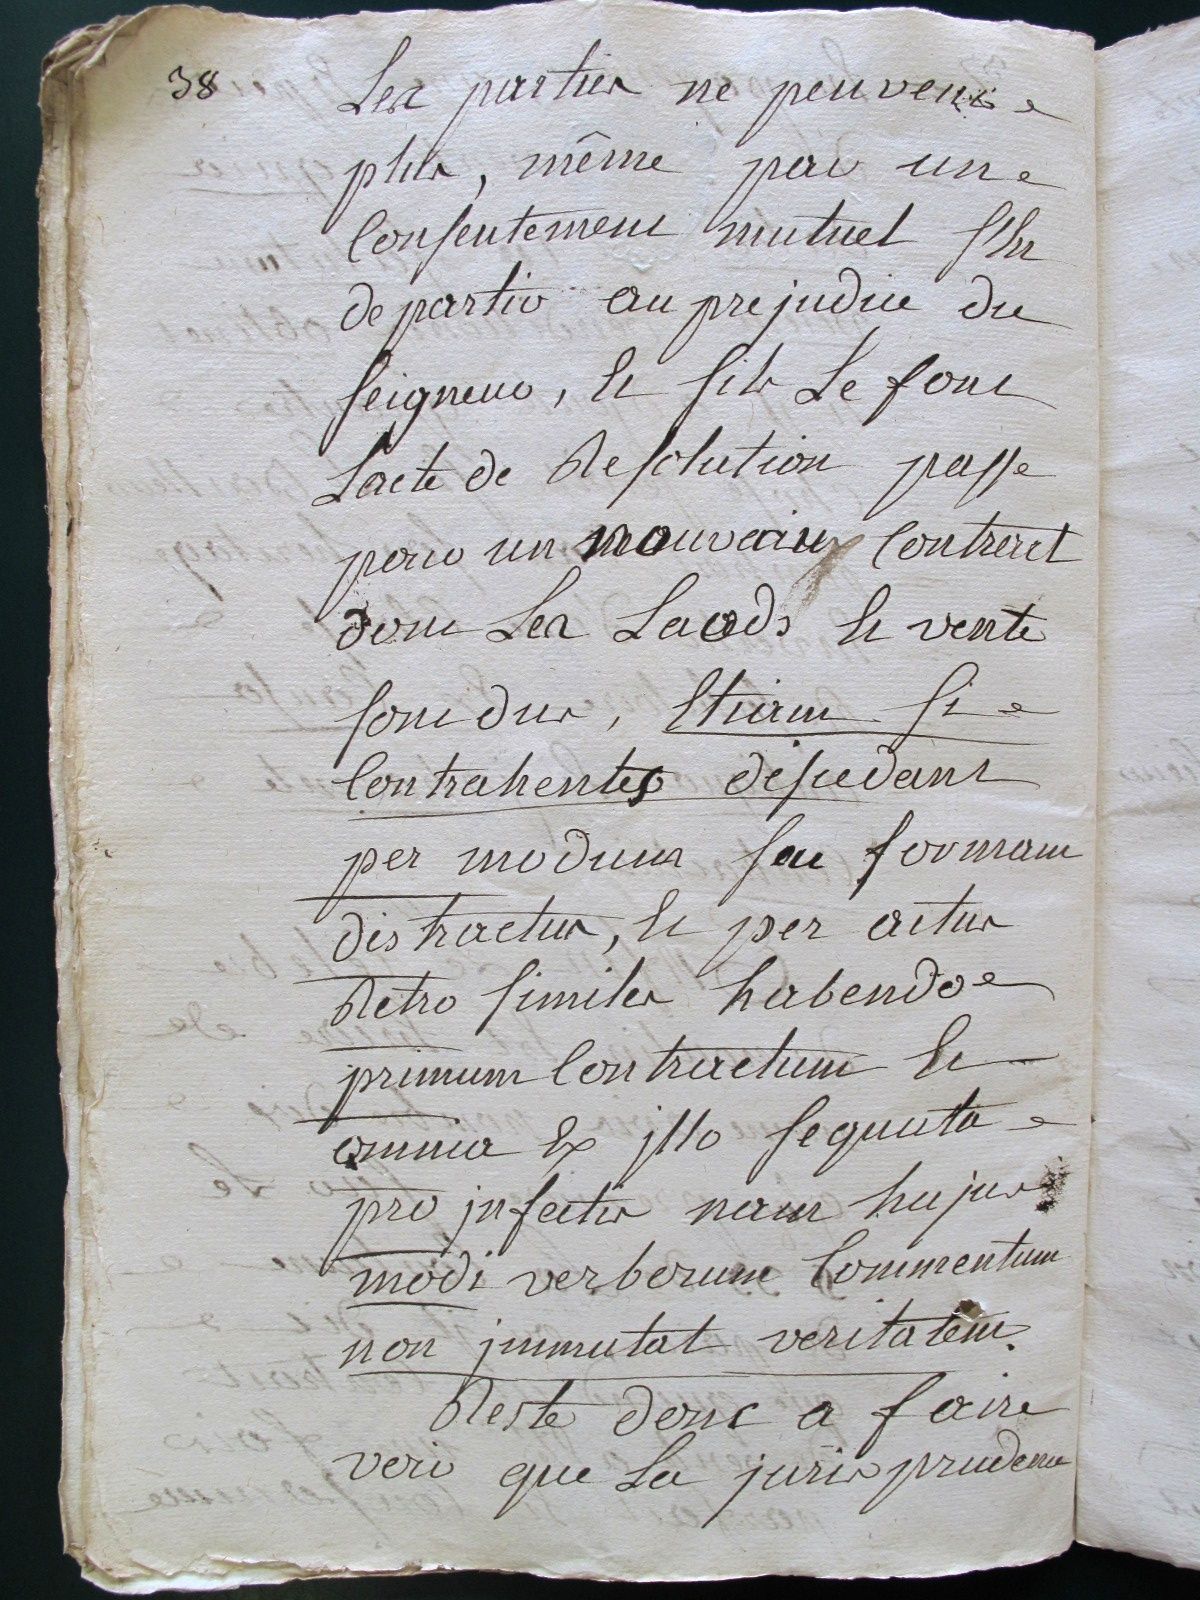 38
Les parties ne peuvent
plus, même par un
Consentement mutuel s'en
departir au prejudice du
seigneur, et s'ils le font
Lacte de Resolution passe
pour un nouveau Contract
dont Les Laods et vente
sont dus, Etiam si
Contrahentes discedant
per modum seu formam
distractus, et per actus
Retro similes habendo
primum Contractum et
omnia Ex illo sequuta
pro infectis nam hujus
modi verborum Commentum
non immutat veritatem.
Reste donc a faire
veoir que La jurisprudence